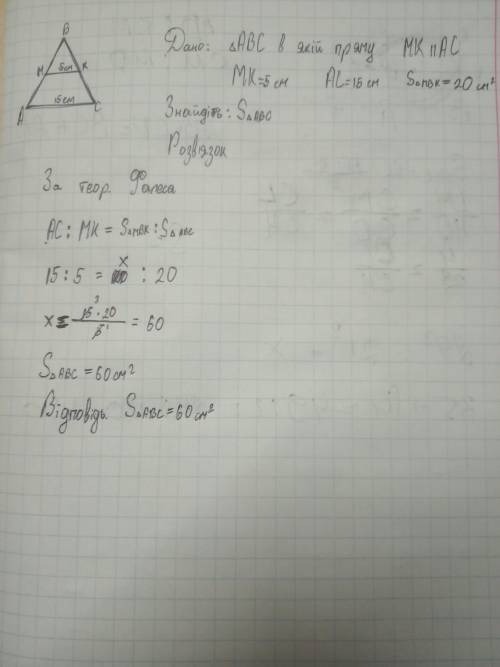 B
M 5см K
15см
A C
Дано: △ABC в якій пряму MK || AC
MK=5 см AC=15 см S△MBK=20 см²
Знайдіть: S△ABC
Розвязок
За теор. Фалеса
AC : MK = S△MBK : S△ABC
15 : 5 = x : 20
x = 15³ · 20 / 5¹ = 60
S△ABC = 60 см²
Відповідь S△ABC = 60 см²